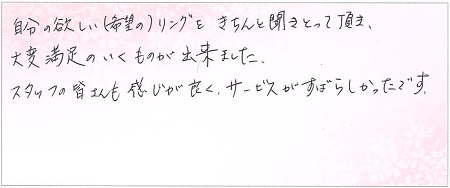 自分の欲しい(希望の)リングを きちんと聞きとって頂き、
大変満足のいくものが出来ました.
スタッフの皆さんも 感じが良く、サービスがすばらしかったです.